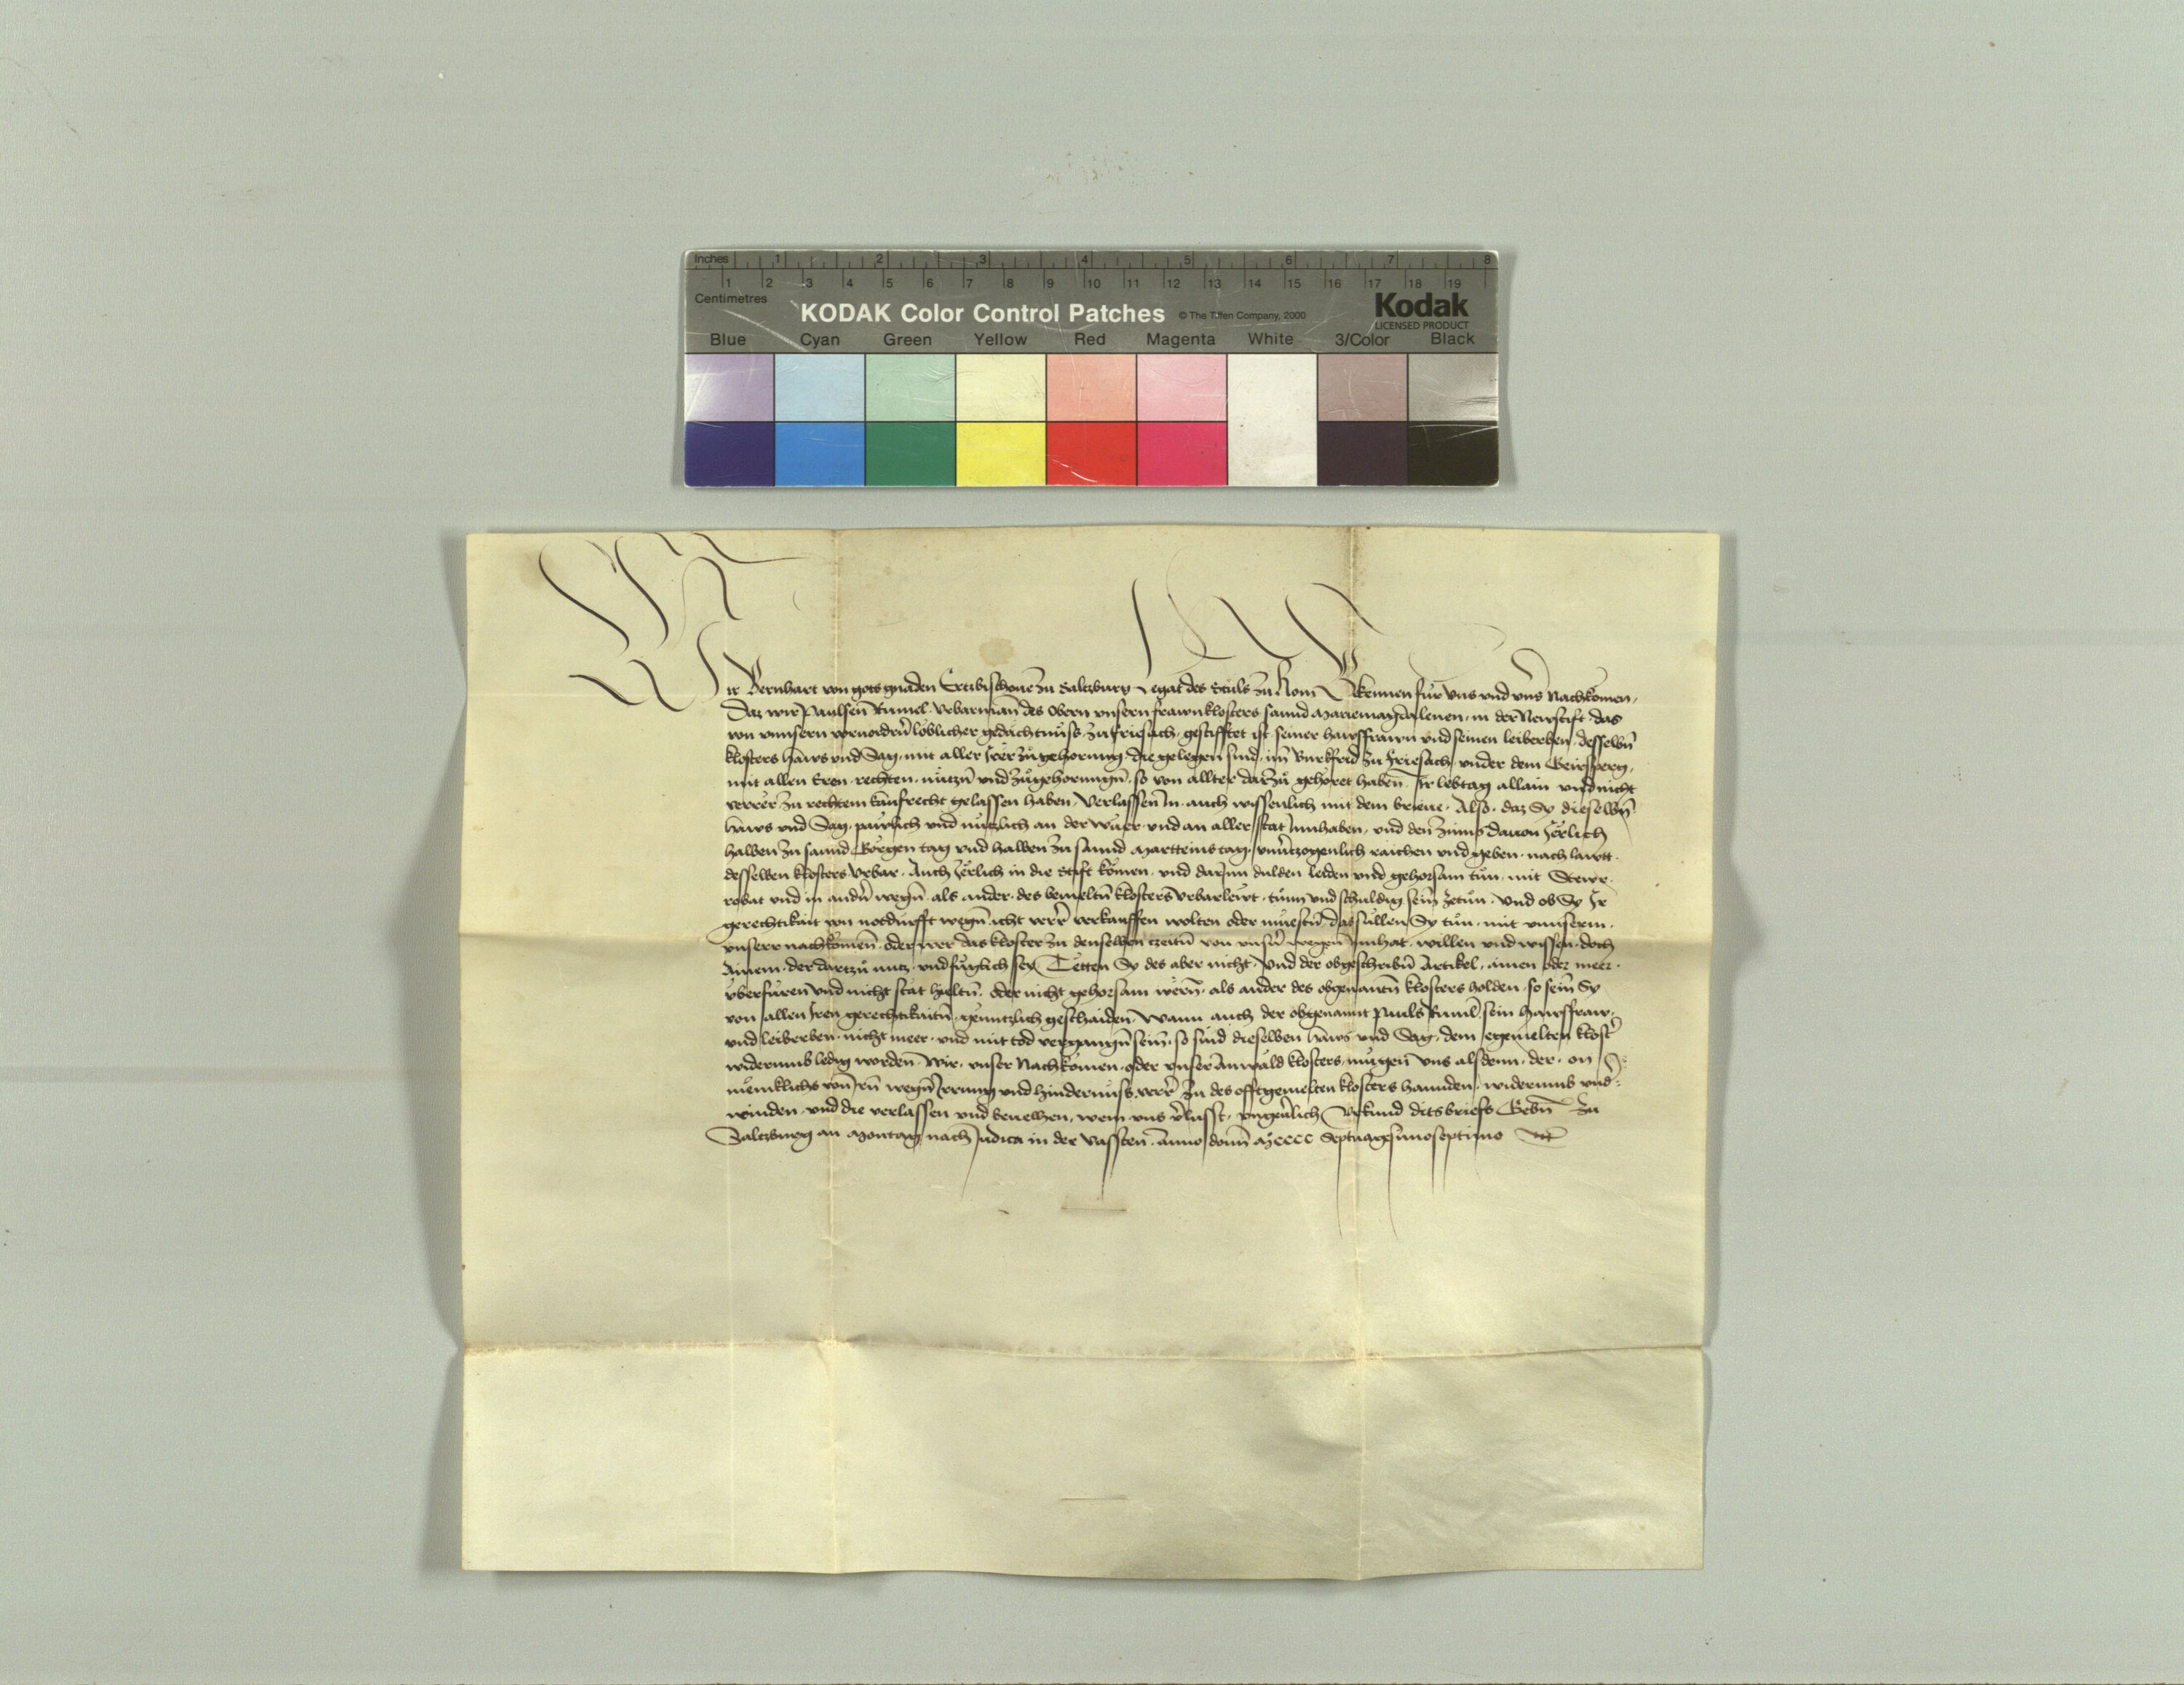 Inches 1 2 3 4 5 6 7 8
1 2 3 4 5 6 7 8 9 10 11 12 13 14 15 16 17 18 19
Centimetres
KODAK Color Control Patches © The Tiffen Company, 2000 Kodak
LICENSED PRODUCT
Blue Cyan Green Yellow Red Magenta White 3/Color Black
Wir Bernhart von gots gnaden Ertzbischoue zu Saltzburg Legat des Stuls zu Rom Bekennen für vns vnd vnser Nachkomen,
Daz wir Paulsen Ruml Vrbarman des Obern vnsern frawnklosters sannd Mariemagdalenen, in der Newstift das
von vnnsern voruordern löblicher gedächtnüss, zu Friesach, gestifftet ist, seiner hawsfrawn vnd seinen leiberben, desselbn̄
klosters haws vnd Sag, mit aller Irer zůgehorung die gelegen sind, im Burkfrid zu Friesach, vnder dem Geirsperg,
mit allen Eren, rechten, nützn̄ vnd zůgehorungn̄, so von allter darzů gehöret haben, Ir lebtag allain vnd nicht
verrer zu rechtem kaufrecht gelassen haben, Verlassen In auch wissenlich mit dem brieue, Also, daz Sy dieselbn̄
haws vnd Sag, päwlich vnd nützlich an der wuer, vnd an aller stat Innhaben, vnd den zinns dauon Jerlich
halben zu sannd Görgen tag vnd halben zu sannd Marteins tag, vnuerzogenlich raichen vnd geben, nach lawtt
desselben klosters Vrbar, Auch Jerlich in die Stift komen, vnd darinn dulden leiden vnd gehorsam tün, mit Stewr,
robat vnd in andern wegn̄, als ander, des bemeltn̄ klosters Vrbarlewt, tünn vnd schuldig sein zetün, Vnd ob Sy Ir
gerechtikait von notdurfft wegn̄ icht verrer verkauffen wolten oder müestn̄, das süllen Sy tün, mit vnnserm,
vnserr nachkomen, oder wer das kloster zu denselben zeitn̄ von vnsern wegen Innhat, willen vnd wissen, doch
Ainem, der dartzů nutz vnd füglich sey, Tetten Sy des aber nicht, Vnd der obgeschribn̄ Artikel, ainen oder meer,
vberfüren vnd nicht stat hieltn̄, oder nicht gehorsam wern̄, als ander des obgenantn̄ klosters holden, so sein Sy
von allen Iren gerechtikaitn̄, genntzlich geschaiden, Wann auch der obgenant Pauls Ruml, sein hawsfraw,
vnd leiberben, nicht meer, vnd mit tod vergangn̄ sein, so sind dieselben haws vnd Sag, dem egemelten kloster
widerumb ledig worden, Wir, vnser Nachkomen, oder vnser Anwald klosters, mügen vns alsdenn, der, on
meniklichs von Irn wegn̄ Irrung vnd hindernüss, verrer zu des offtgemelten klosters hannden, widerumb vnder¬
winden, vnd die verlassen vnd beuelhen, wem vns verlusst, vngeuerlich, Vrkund ditsbriefs Gebn̄ zu
Saltzburg an Montag nach Judica in der Vassten, Anno domini Mcccc Septuagesimoseptimo